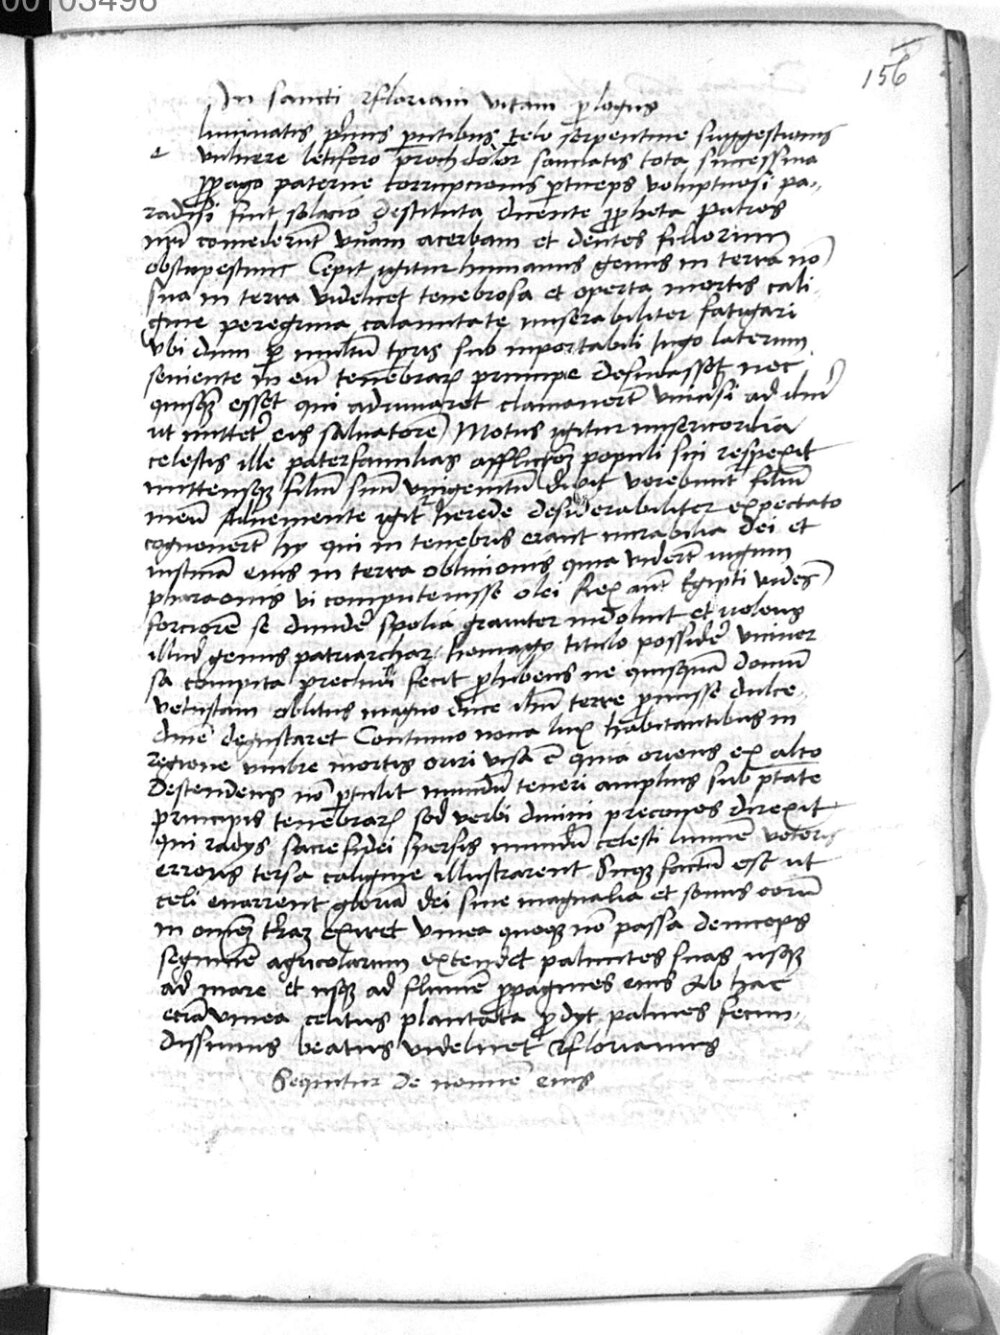 00103496
156
In sancti Floriani vitam prologus
liminatis primis parentibus telo serpentine suggestionis
e vulnere letifero proch dolor sauciatis tota successiva
propago paterne corrupcionis particeps voluptuosi pa-
radisi fuit solacio destituta dicente propheta Patres
nostri comederunt uvam acerbam et dentes filiorum
obstupescunt Cepit igitur humanum genus in terra non
sua in terra videlicet tenebrosa et operta mortis cali-
gine peregrina calamitate miserabiliter fatigari
Ubi dum per multum temporis sub inportabili iugo laterum
seviente in eum tenebrarum principe desudasset nec
quisquam esset qui adiuvaret clamaverunt universi ad dominum
ut mitteret eis salvatorem Motus igitur misericordia
celestis ille paterfamilias afflictionem populi sui respexit
mittensque filium suum unigenitum dixit verebuntur filium
meum Adveniente igitur herede desiderabiliter expectato
cognoverunt hy qui in tenebris erant mirabilia dei et
iusticiam eius in terra oblivionis quia viderunt iugum
pharaonis vi computruisse olei Rex autem Egipti videns
forciorem se dividere spolia graviter indoluit et volens
illud genus patriarchar homagii titulo possidere univer
sa compita precludi fecit prohibens ne quisquam domum
vetustam oblitus magno duce illum terre promisse dulce-
dinem degustaret Continuo nova lux habitantibus in
regione umbre mortis oriri visa est quia oriens ex alto
descendens non pertulit mundum teneri amplius sub potestate
principis tenebrarum sed verbi divini precones direxit
qui radys sacre fidei spersis mundum celesti lumine veteris
erroris tersa caligine illustrarent Sicque factum est ut
celi enarrent gloriam dei sive magnalia et sonus eorum
in omnem terram exiret vinea quoque non passa deinceps
segnitiem agricolarum extendet palmites suas usque
ad mare et usque ad flumen propagines eius Ab hac
eciam vinea celitus plantata prodyt palmes fecun-
dissimus beatus videlicet Florianus
Sequitur de nomine eius